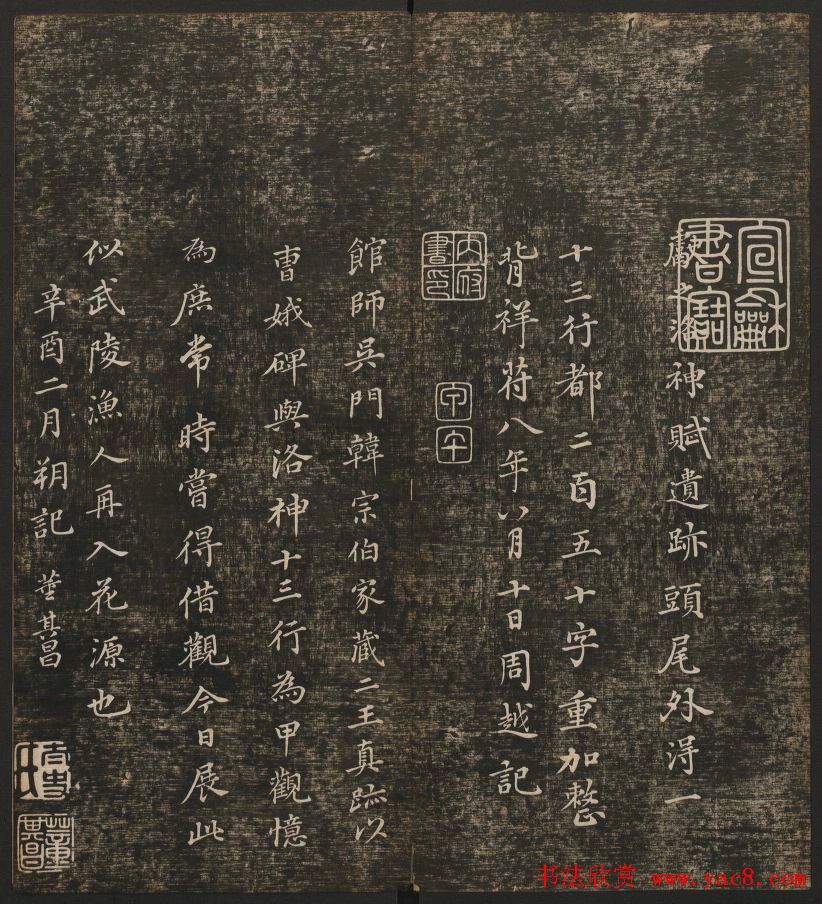 宣龢書寶
之洛神賦遺跡頭尾外淂一
十三行都二百五十字重加整
背祥符八年八月十日周越記
內府書印
館師吳門韓宗伯家藏二王真跡以
曹娥碑與洛神十三行為甲觀憶
為庶常時嘗得借觀今日展此
似武陵漁人再入花源也
辛酉二月朔記 董其昌
太史氏
董其昌
书法欣赏 www.yac8.com